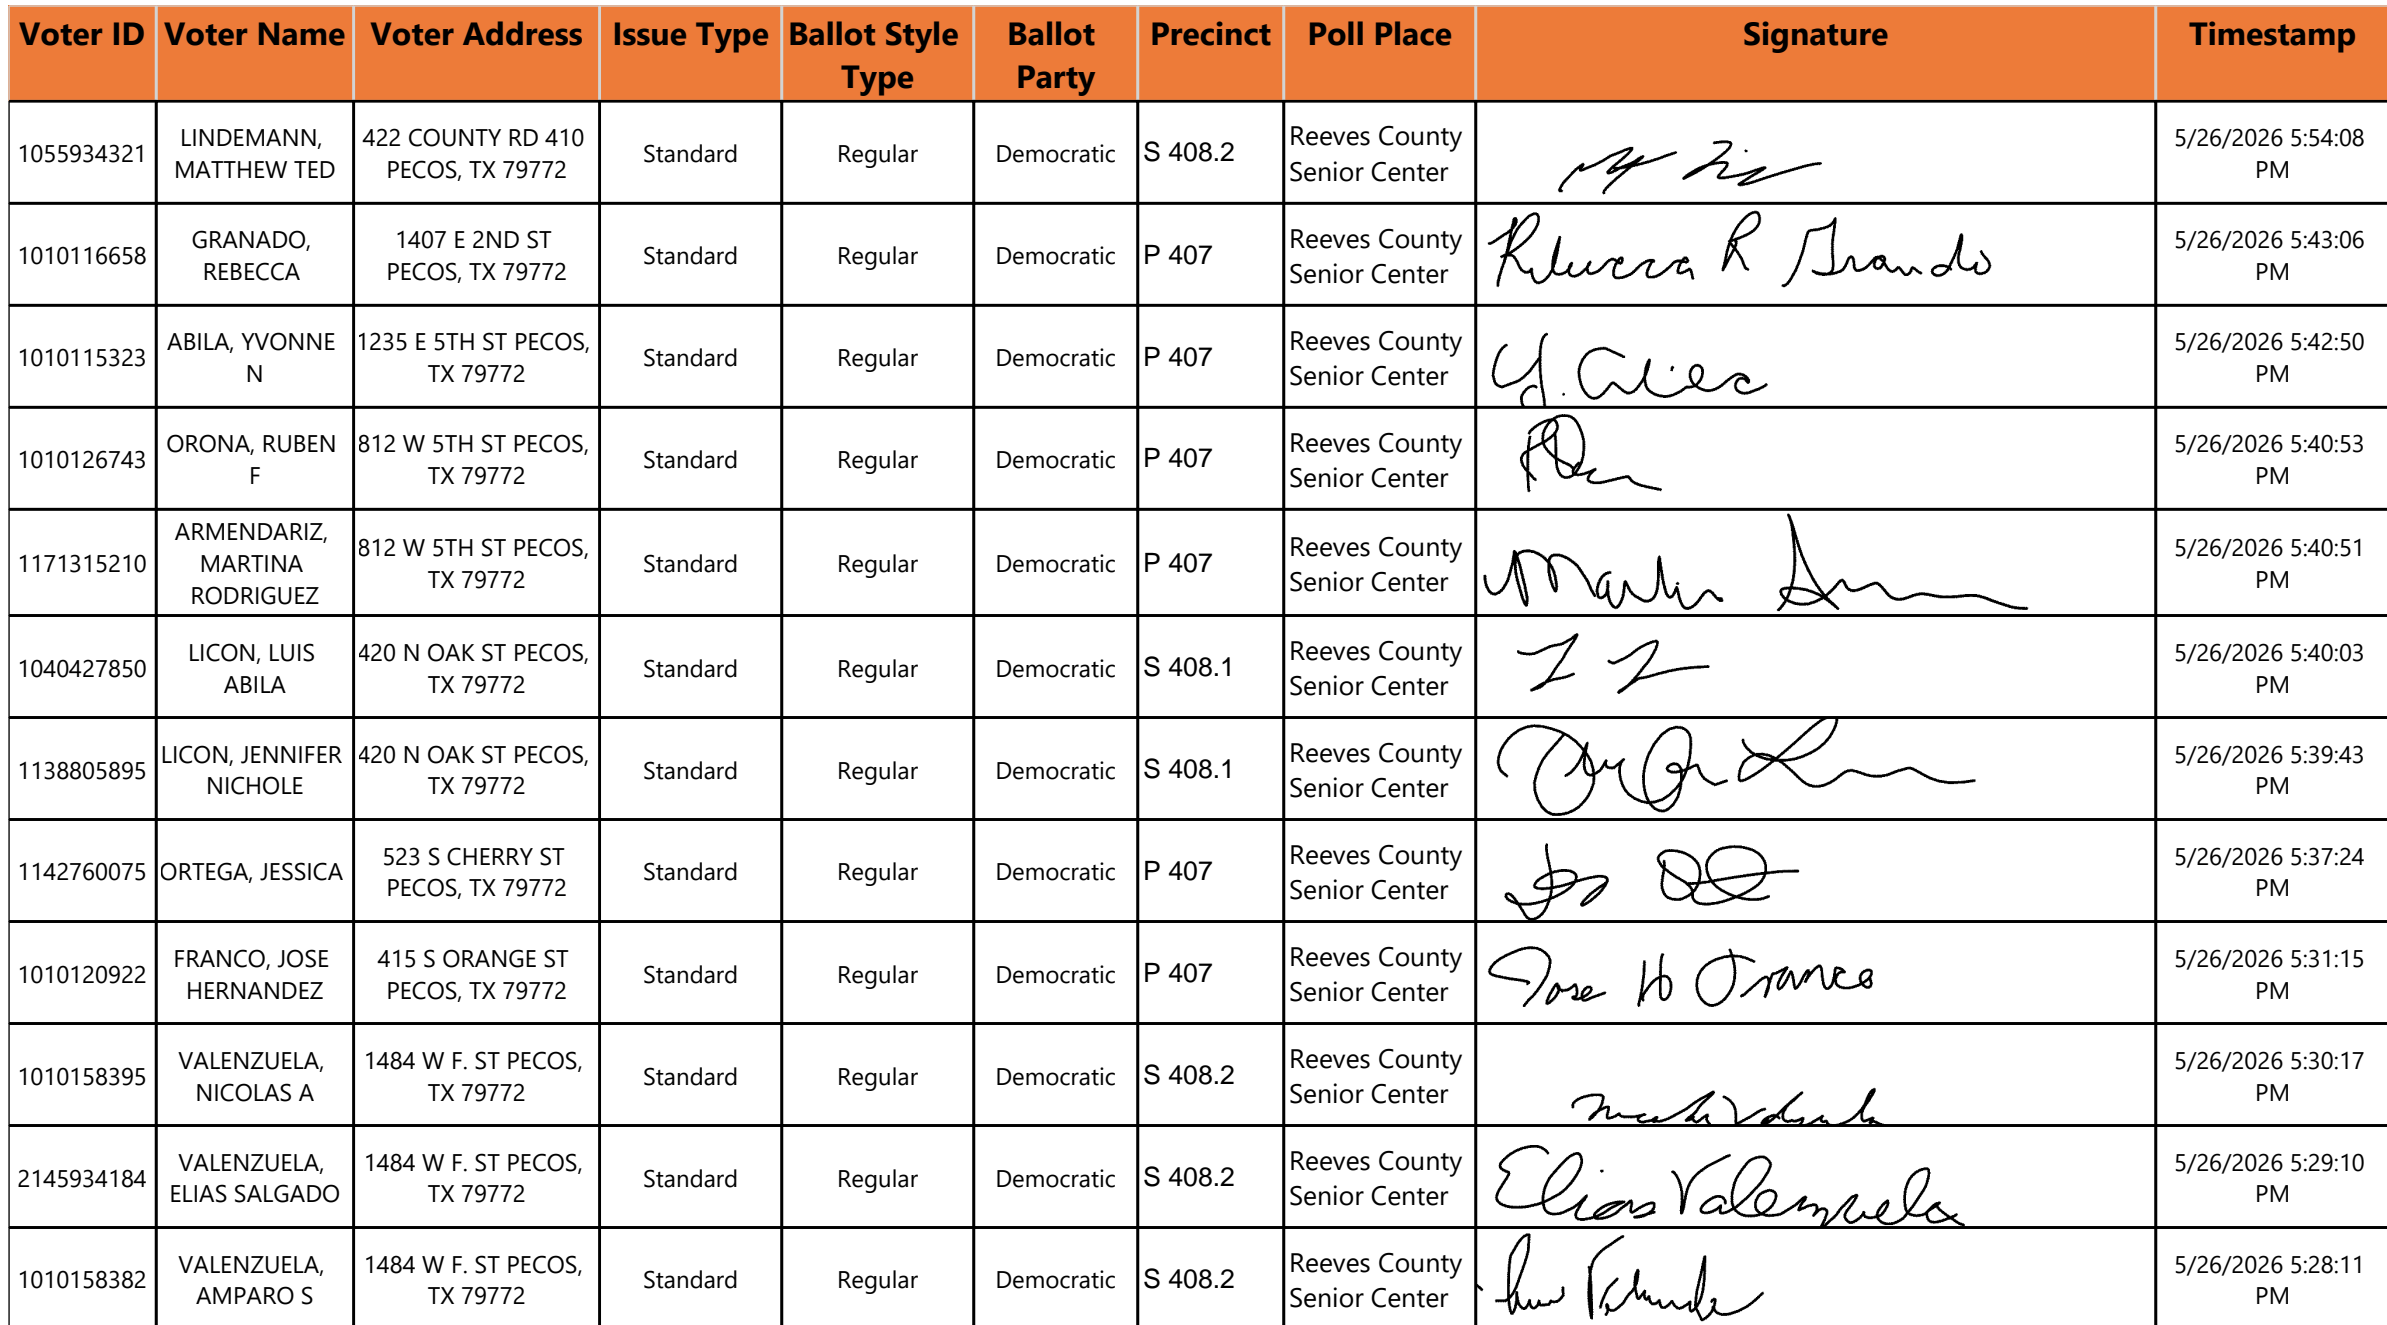 Voter ID Voter Name Voter Address Issue Type Ballot Style Type Ballot Party Precinct Poll Place Signature Timestamp
1055934321 LINDEMANN, MATTHEW TED 422 COUNTY RD 410 PECOS, TX 79772 Standard Regular Democratic S 408.2 Reeves County Senior Center 5/26/2026 5:54:08 PM
1010116658 GRANADO, REBECCA 1407 E 2ND ST PECOS, TX 79772 Standard Regular Democratic P 407 Reeves County Senior Center Rebecca R Granado 5/26/2026 5:43:06 PM
1010115323 ABILA, YVONNE N 1235 E 5TH ST PECOS, TX 79772 Standard Regular Democratic P 407 Reeves County Senior Center Y. Abila 5/26/2026 5:42:50 PM
1010126743 ORONA, RUBEN F 812 W 5TH ST PECOS, TX 79772 Standard Regular Democratic P 407 Reeves County Senior Center 5/26/2026 5:40:53 PM
1171315210 ARMENDARIZ, MARTINA RODRIGUEZ 812 W 5TH ST PECOS, TX 79772 Standard Regular Democratic P 407 Reeves County Senior Center 5/26/2026 5:40:51 PM
1040427850 LICON, LUIS ABILA 420 N OAK ST PECOS, TX 79772 Standard Regular Democratic S 408.1 Reeves County Senior Center L L 5/26/2026 5:40:03 PM
1138805895 LICON, JENNIFER NICHOLE 420 N OAK ST PECOS, TX 79772 Standard Regular Democratic S 408.1 Reeves County Senior Center 5/26/2026 5:39:43 PM
1142760075 ORTEGA, JESSICA 523 S CHERRY ST PECOS, TX 79772 Standard Regular Democratic P 407 Reeves County Senior Center 5/26/2026 5:37:24 PM
1010120922 FRANCO, JOSE HERNANDEZ 415 S ORANGE ST PECOS, TX 79772 Standard Regular Democratic P 407 Reeves County Senior Center Jose H Franco 5/26/2026 5:31:15 PM
1010158395 VALENZUELA, NICOLAS A 1484 W F. ST PECOS, TX 79772 Standard Regular Democratic S 408.2 Reeves County Senior Center 5/26/2026 5:30:17 PM
2145934184 VALENZUELA, ELIAS SALGADO 1484 W F. ST PECOS, TX 79772 Standard Regular Democratic S 408.2 Reeves County Senior Center Elias Valenzuela 5/26/2026 5:29:10 PM
1010158382 VALENZUELA, AMPARO S 1484 W F. ST PECOS, TX 79772 Standard Regular Democratic S 408.2 Reeves County Senior Center 5/26/2026 5:28:11 PM